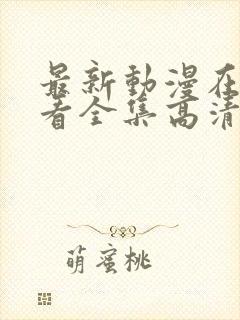 最新動漫在
看全集高清
萌蜜桃